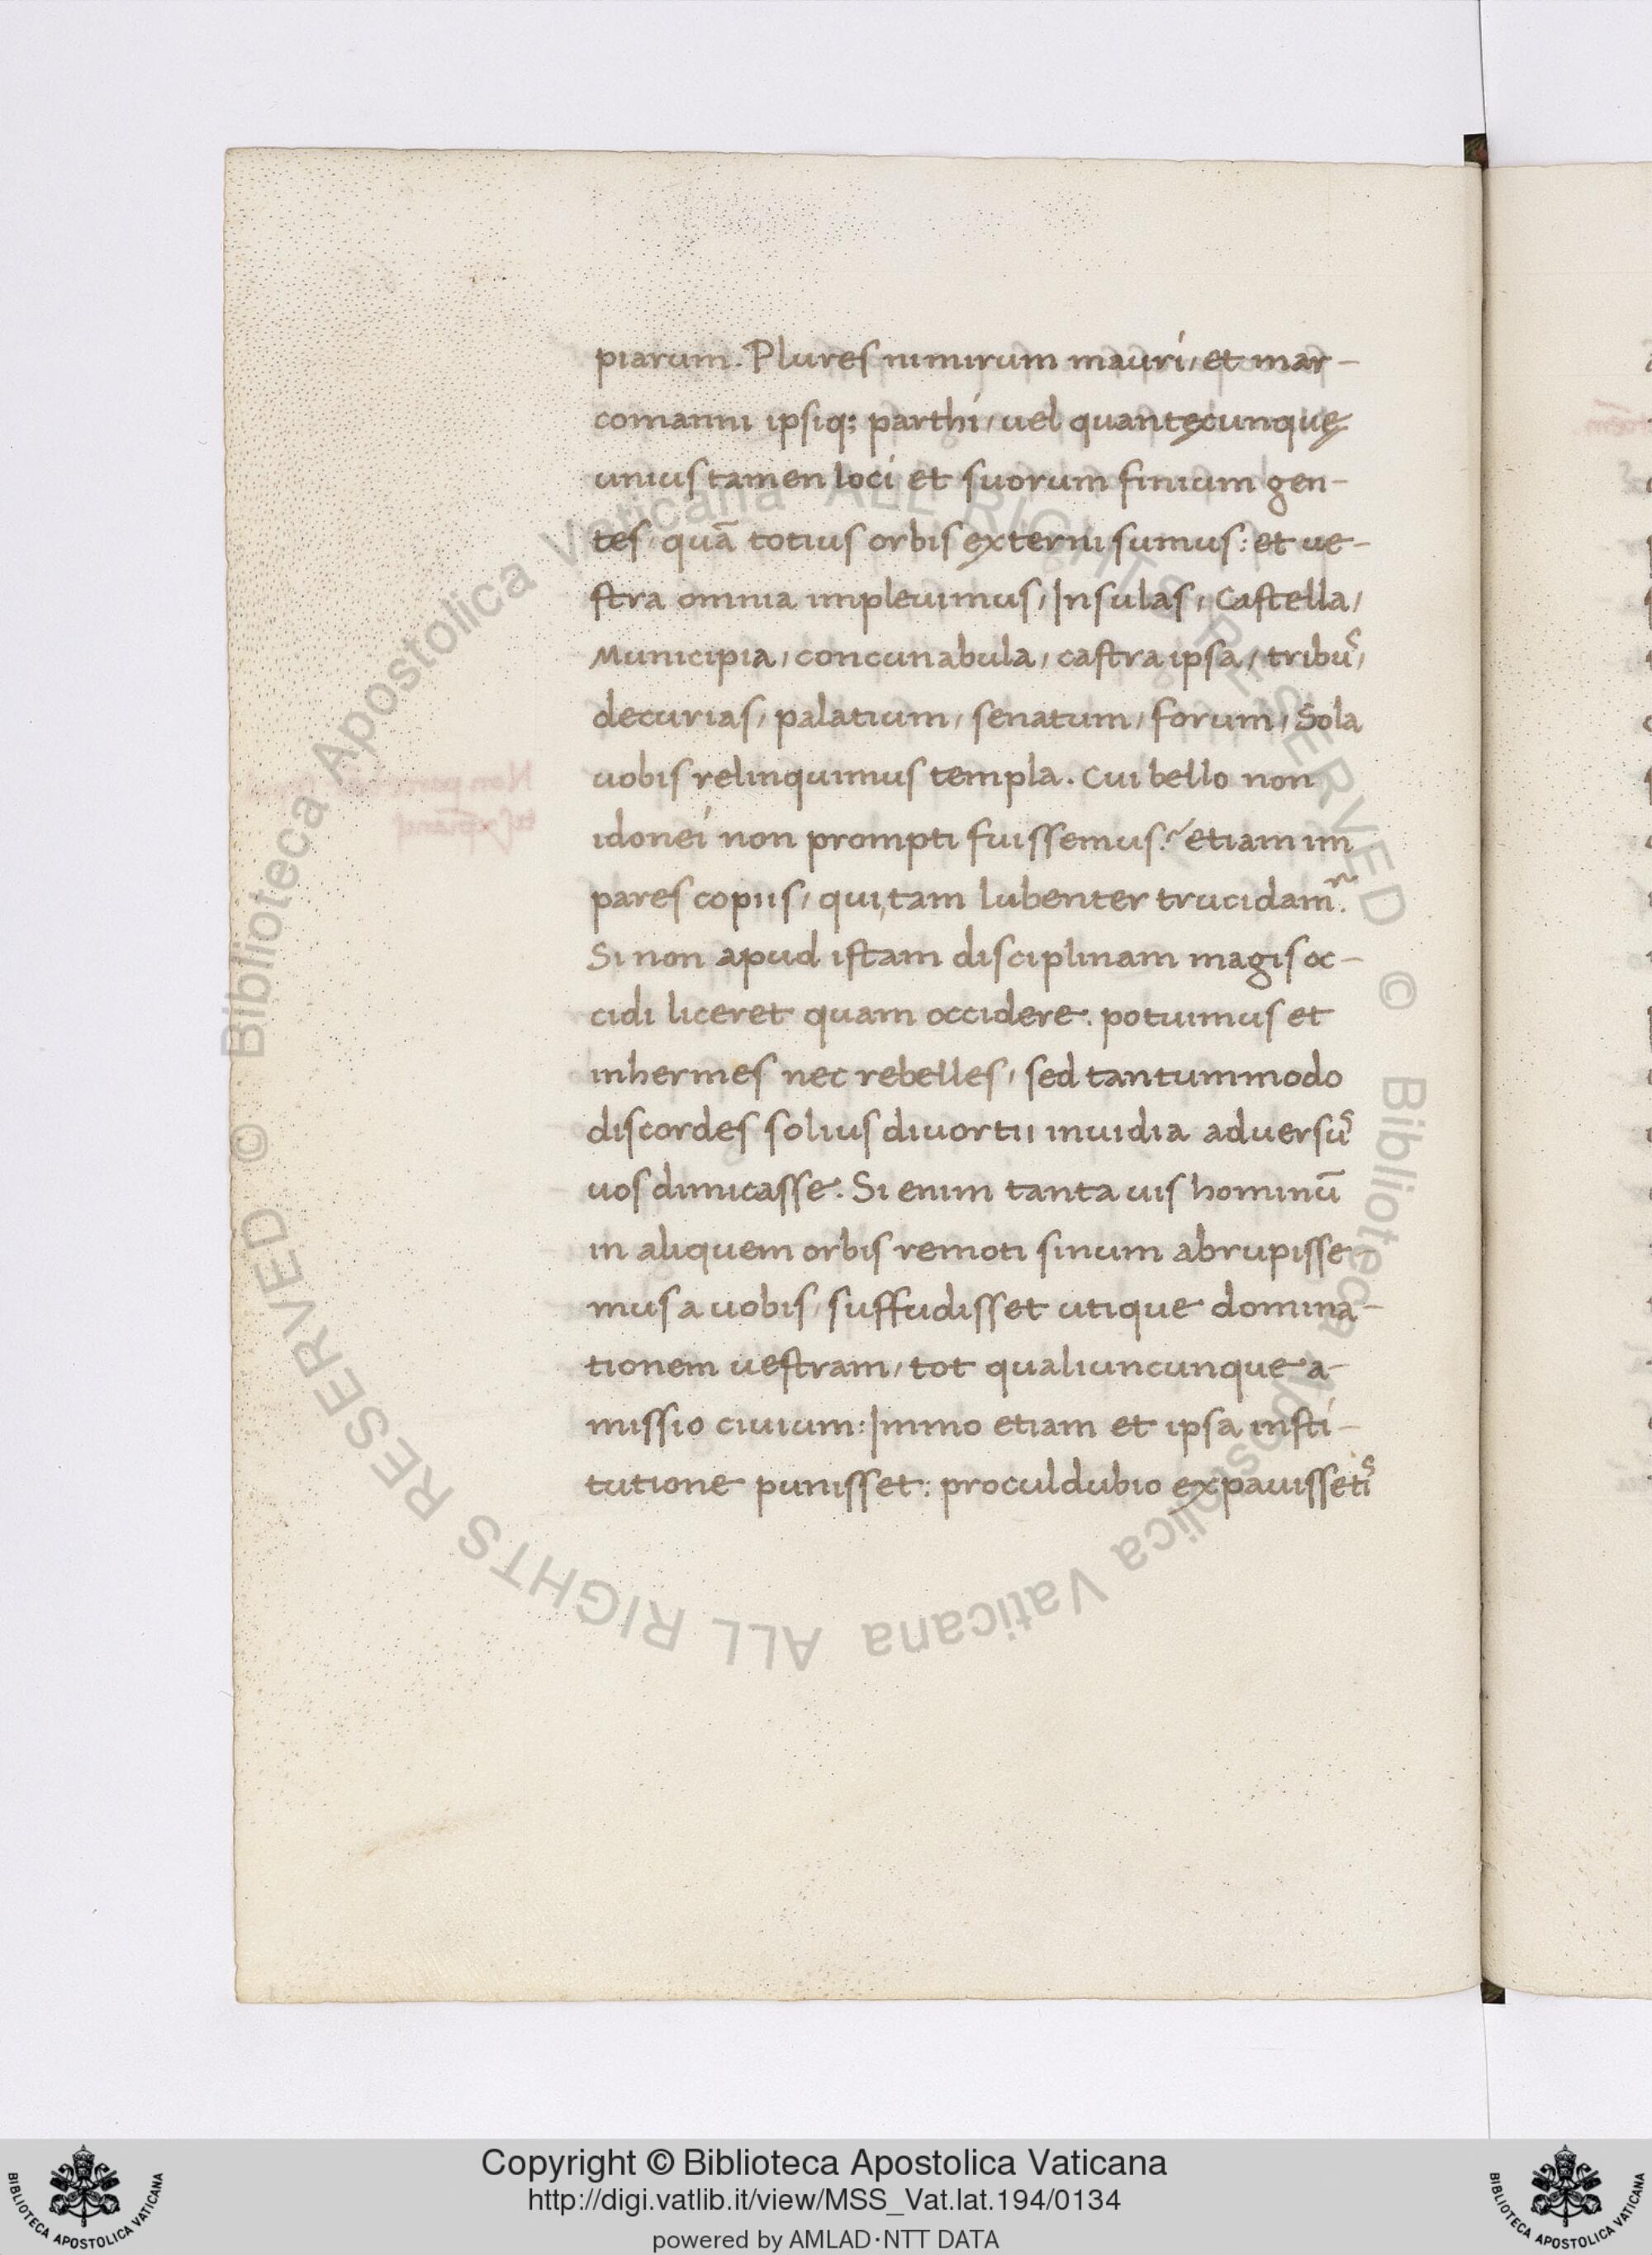 piarum. Plures nimirum mauri, et mar-
comanni ipsiq; parthi, uel quantęcunquę
unius tamen loci et suorum finium gen-
tes, quā totius orbis externi sumus: et ue-
stra omnia impleuimus, Insulas, Castella,
Municipia, concunabula, castra ipsa, tribuˢ,
decurias, palatium, senatum, forum, Sola
uobis relinquimus templa. Cui bello non
idonei non prompti fuissemus? etiam im
pares copiis, qui, tam lubenter trucidamʳ.
Si non apud istam disciplinam magis oc-
cidi liceret quam occidere. potuimus et
inhermes nec rebelles, sed tantummodo
discordes solius diuortii inuidia aduersuˢ
uos dimicasse. Si enim tanta uis hominū
in aliquem orbis remoti sinum abrupisse
mus a uobis, suffudisset utique domina-
tionem uestram, tot qualiuncunque a-
missio ciuium: Immo etiam et ipsa insti-
tutione punisset: proculdubio expauissetiˢ
Biblioteca Apostolica Vaticana ALL RIGHTS RESERVED ©
Biblioteca Apostolica Vaticana ALL RIGHTS RESERVED ©
Copyright © Biblioteca Apostolica Vaticana
http://digi.vatlib.it/view/MSS_Vat.lat.194/0134
powered by AMLAD·NTT DATA
BIBLIOTECA APOSTOLICA VATICANA
BIBLIOTECA APOSTOLICA VATICANA